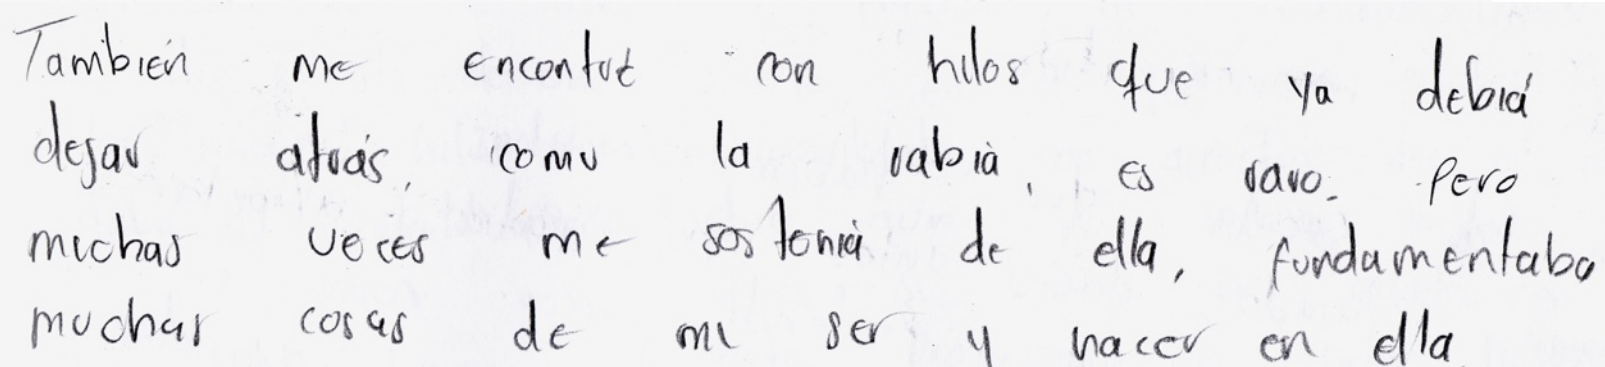 También me encontré con hilos que ya debiá
dejar atrás, como la rabià, es raro. Pero
muchas veces me sosteniá de ella, fundamentaba
muchas cosas de mi ser y hacer en ella